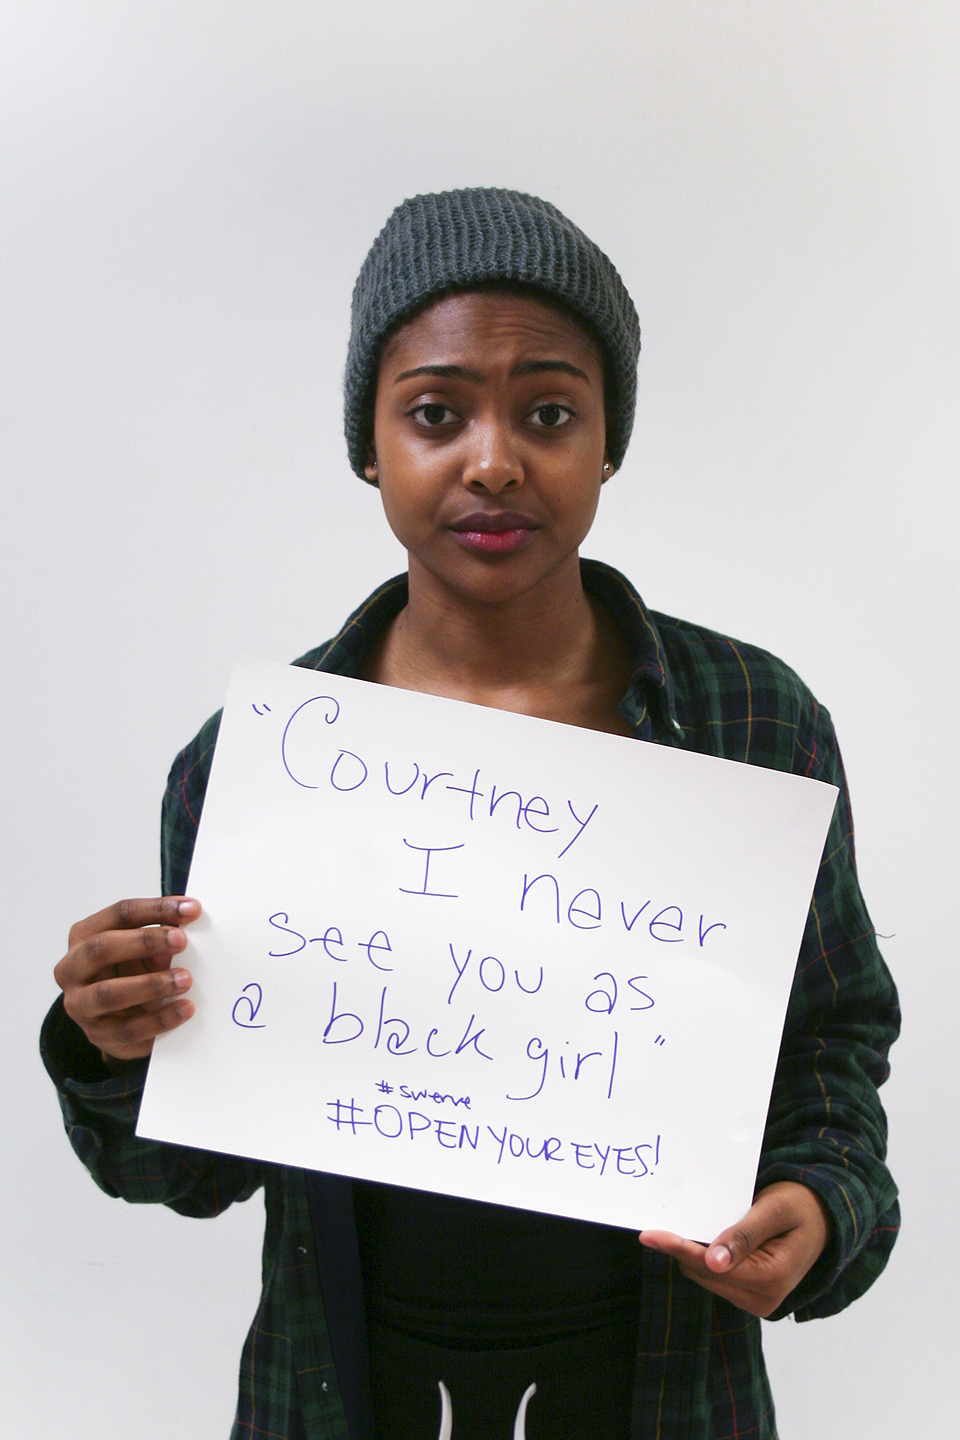 "Courtney
I never
see you as
a black girl"
#swerve
#OPENYOUREYES!